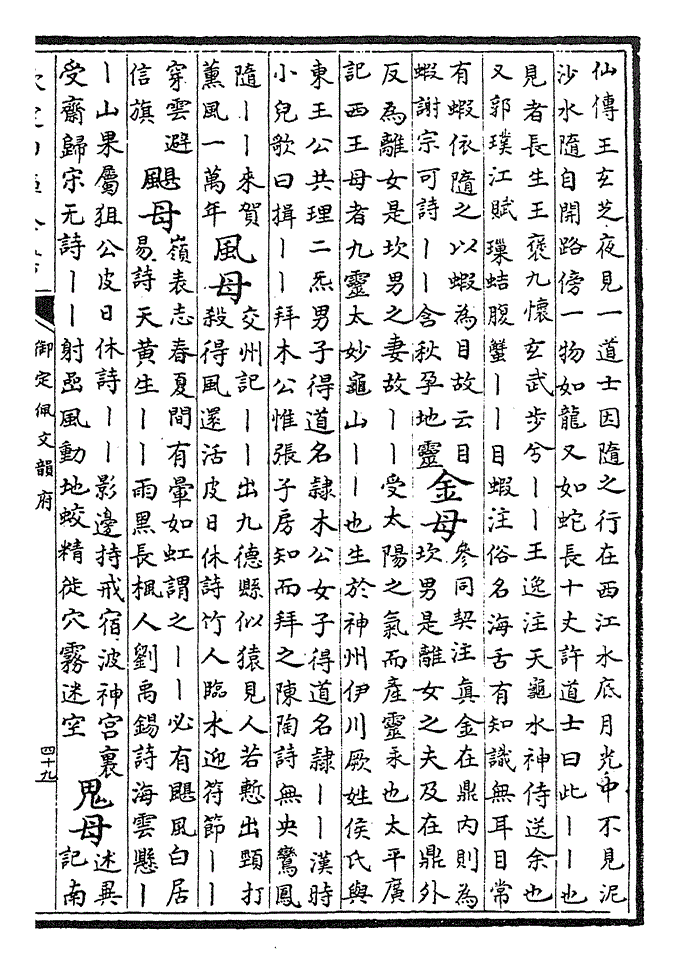 仙傳王玄芝夜見一道士因隨之行在西江水底月光中不見泥
沙水隨自開路傍一物如龍又如蛇長十丈許道士曰此丨丨也
見者長生王褒九懷玄武步兮丨丨王逸注天龜水神侍送余也
又郭璞江賦璅蛣腹蟹丨丨目蝦注俗名海舌有知識無耳目常
有蝦依隨之以蝦為目故云目
蝦謝宗可詩丨丨含秋孕地靈
金母
參同契注真金在鼎内則為
坎男是離女之夫及在鼎外
反為離女是坎男之妻故丨丨受太陽之氣而產靈汞也太平廣
記西王母者九靈太妙龜山丨丨也生於神州伊川厥姓侯氏與
東王公共理二炁男子得道名隸木公女子得道名隸丨丨漢時
小兒歌曰揖丨丨拜木公惟張子房知而拜之陳陶詩無央鸞鳳
隨丨丨來賀
薰風一萬年
風母
交州記丨丨出九德縣似猿見人若慙出頸打
殺得風還活皮日休詩竹人臨水迎符節丨丨
穿雲避
信旗
颶母
嶺表志春夏間有暈如虹謂之丨丨必有颶風白居
易詩天黄生丨丨雨黑長楓人劉禹錫詩海雲懸丨
丨山果屬狙公皮日休詩丨丨影邊持戒宿波神宫裏
受齋歸宋无詩丨丨射蜃風動地蛟精徙穴霧迷空
鬼母
述異
記南
御定佩文韻府
四十九